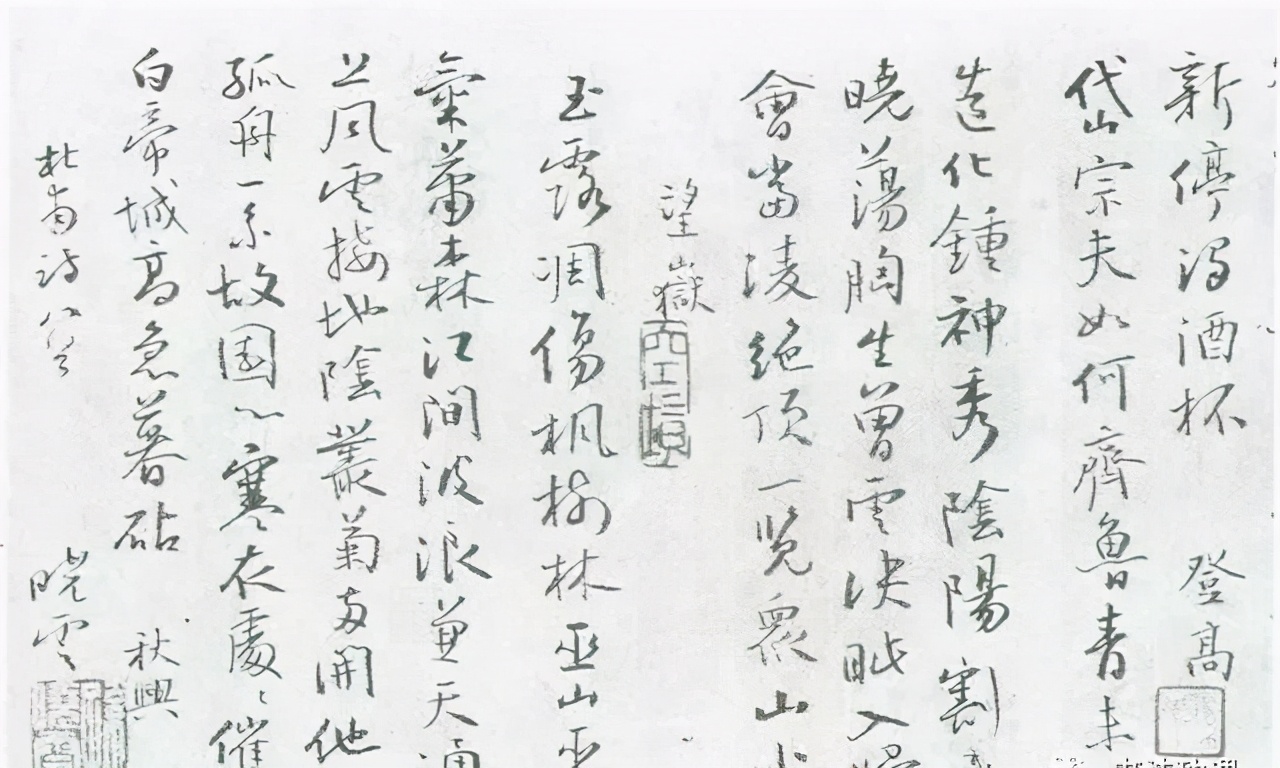 新停濁酒杯 登高
岱宗夫如何齊魯青未
造化鍾神秀陰陽割
曉蕩胸生曾雲决眦入歸
會當淩絶頂一覽眾山小
望嶽
玉露凋傷楓樹林巫山巫
氣蕭森江間波浪兼天湧
上風雲接地陰叢菊兩開他
孤舟一系故園心寒衣處〻催
白帝城高急暮砧 秋興
杜甫詩
曉雲